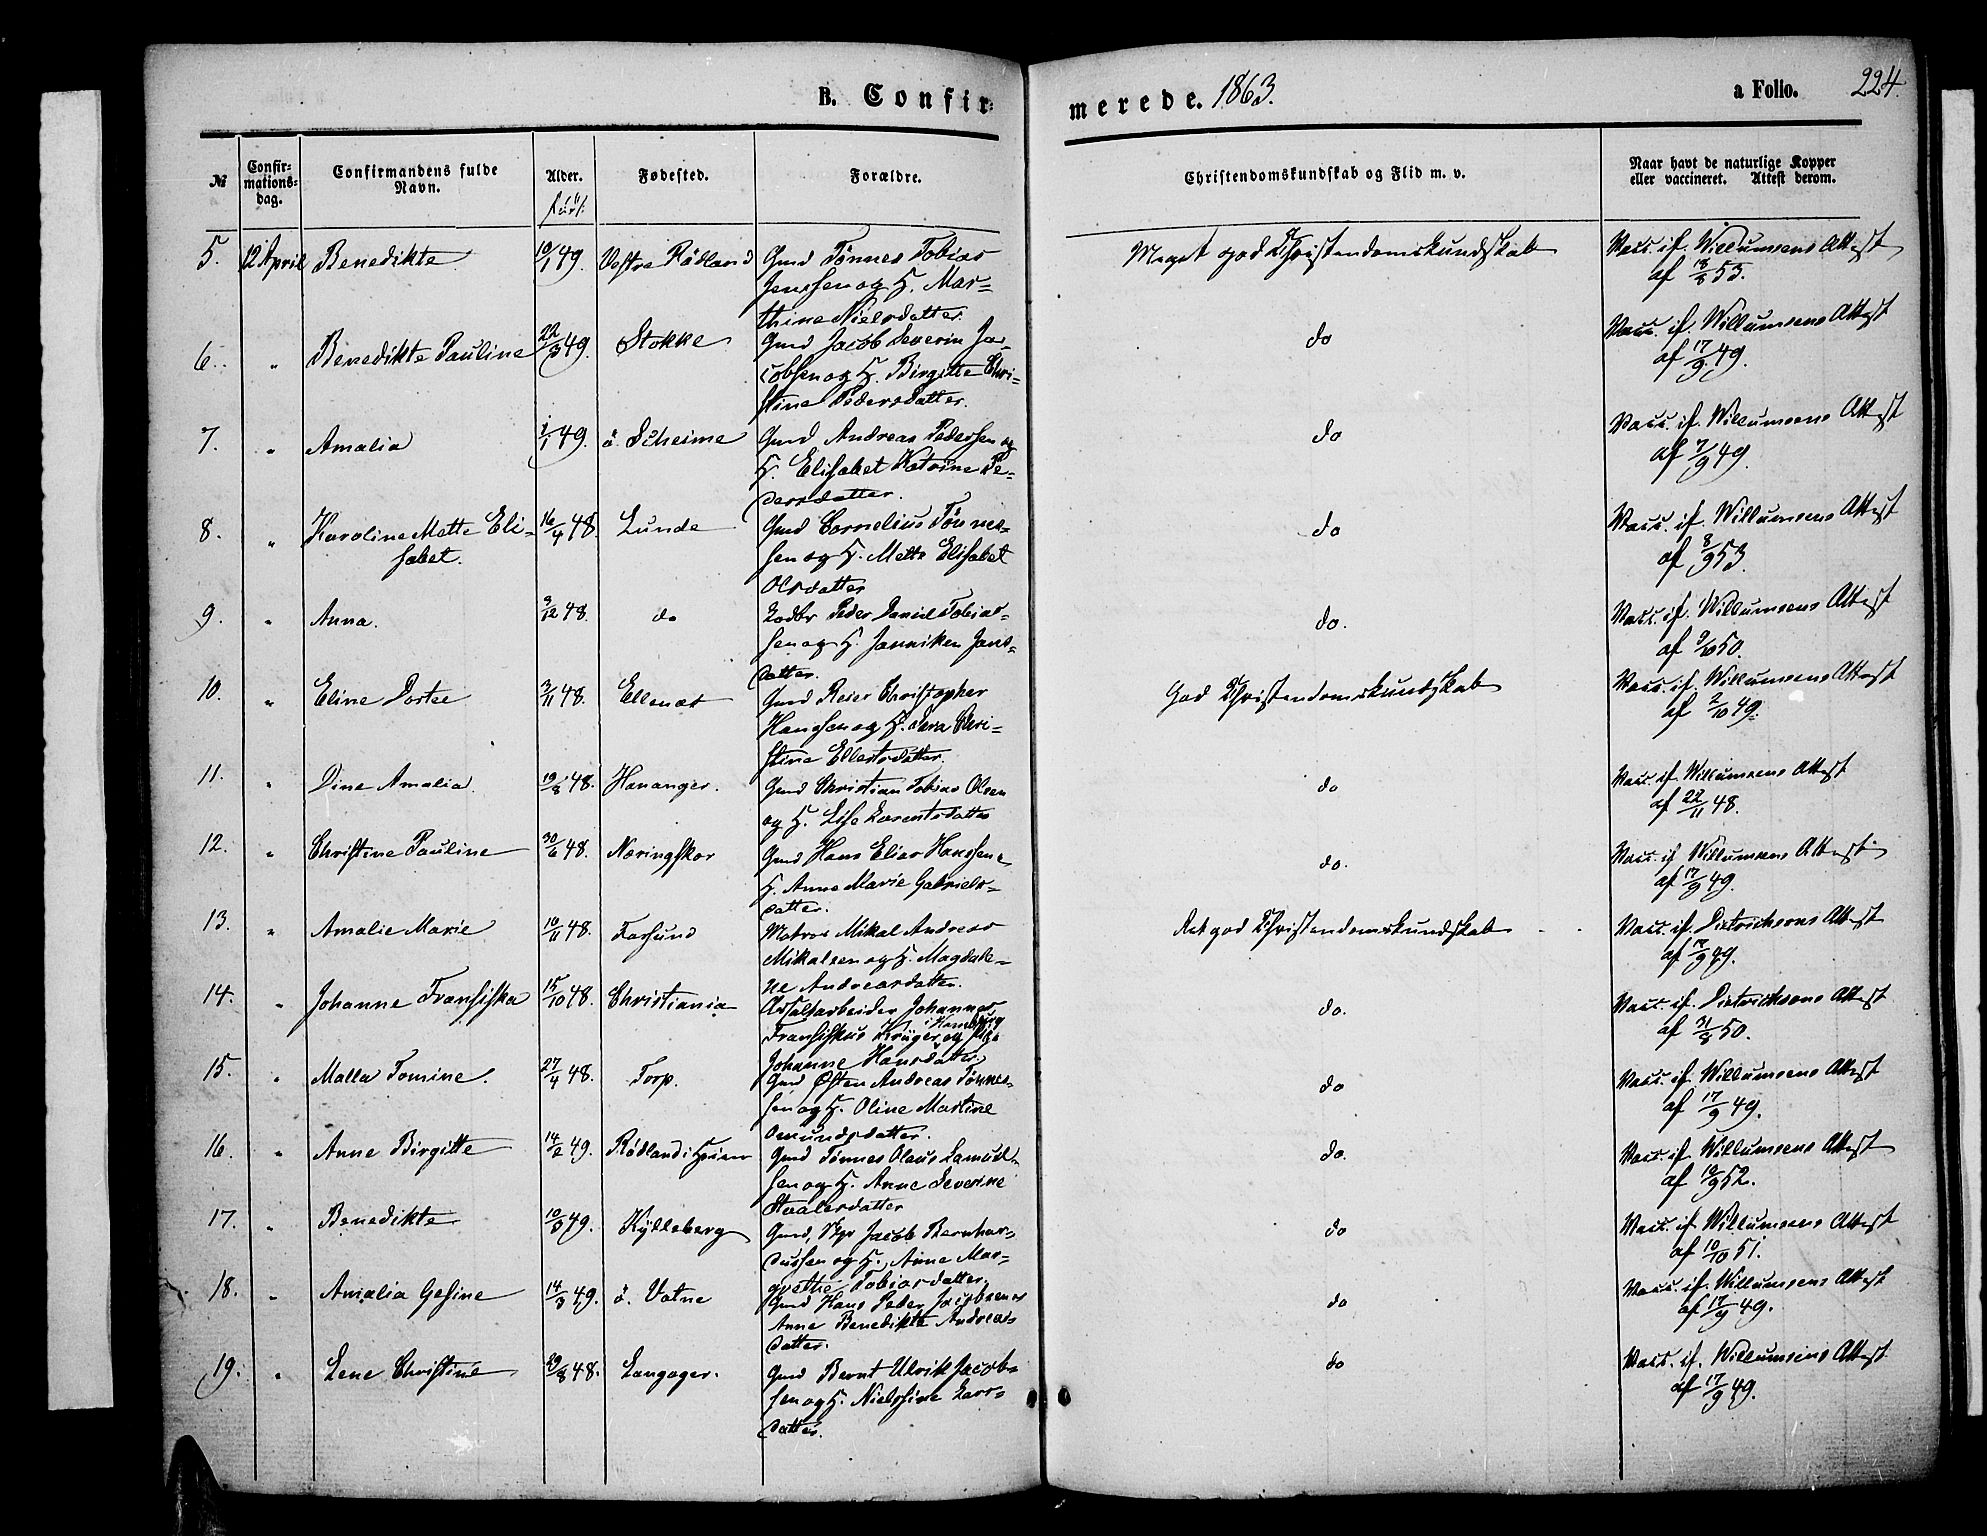 B. Confir-
merede. 1863.
a Folio. 224.
№
Confir-
mations-
dag.
Confirmandens fulde
Navn.
Alder.
Fødested.
Forældre.
Christendomskundskab og Flid m. v.
Naar havt de naturlige Kopper
eller vaccineret. Attest derom.
5. 12 April Benedikte 10/1 49. Vestre Rødland Gmd Tønnes Tobias
Jenssen og H. Mar-
thine Nielsdatter.
Meget god Christendomskundskab
Vacc. if. Willumsens Attest
af 18/8 53.
6. " Benedikte Pauline 22/3 49. Stokke Gmd Jacob Severin Ja-
cobsen og H. Birgitte Chri-
stine Pedersdatter.
do
Vacc. if. Willumsens Attest
af 17/9 49.
7. " Amalia 1/1 49. ö. Scheime Gmd Andreas Pedersen og
H. Elisabet Katrine Pe-
dersdatter.
do
Vacc. if. Willumsens Attest
af 7/9 49.
8. " Karoline Mette Eli-
sabet. 16/4 48. Lunde Gmd Cornelius Tønnes-
sen og H. Mette Elisabet
Olsdatter
do
Vacc. if. Willumsens Attest
af 8/9 53.
9. " Anna. 9/12 48. do Lodbr Peder Daniel Tobias-
sen og H. Janniken Jans-
datter.
do.
Vacc. if. Willumsens Attest
af 9/10 50.
10. " Eline Dortee 3/11 48. Ellenæs Gmd Reier Christopher
Hanssen og H. Sara Chri-
stine Ellertsdatter.
God Christendomskundskab
Vacc. if. Willumsens Attest
af 2/10 49.
11. " Dine Amalia 19/8 48. Hananger. Gmd Christian Tobias Olsen
og H. Lise Lorentsdatter
do
Vacc. if. Willumsens Attest
af 22/11 48.
12. " Christine Pauline 30/6 48. Næringskor Gmd Hans Elias Hanssen
H. Anne Marie Gabriels-
datter.
do.
Vacc. if Willumsens Attest
af 17/9 49.
13. " Amalie Marie 10/11 48. Farsund Matros Mikal Andreas
Mikalsen og H. Magdale-
ne Andreasdatter.
Ret god Christendomskundskab
Vacc. if. Dietrichsons Attest
af 17/9 49.
14. " Johanne Fransiska 15/10 48. Christiania Asfaltarbeider Johannes
Fransiskus Krüger i Hamburg og
Johanne Hansdatter.
do.
Vacc. if. Dietrichsons Attest
af 31/8 50.
15. " Malla Tomine. 27/4 48. Torp. Gmd Østen Andreas Tønnes-
sen og H. Oline Martine
Omundsdatter.
do
Vacc. if. Willumsens Attest
af 17/9 49.
16. " Anne Birgitte 14/2 49. Rødland i Gmd Tønnes Olaus Samuel-
sen og H. Anne Severine
Staalesdatter
do.
Vacc. if. Willumsens Attest
af 10/9 52.
17. " Benedikte 10/3 49. Kylleberg Gmd, Skpr Jacob Bernhar-
dussen og H. Anne Mar-
grethe Tobiasdatter.
do
Vacc. if. Willumsens Attest
af 10/10 51.
18. " Amalia Gesine 14/3 49. ö. Vatne Gmd Hans Peder Jacobsen og
Anne Benedikte Andreas-
datter.
do
Vacc. if. Willumsens Attest
af 17/9 49.
19. " Lene Christine 29/8 48. Langager. Gmd Bernt Ulrik Jacob-
sen og H. Nielssine Lars-
datter.
do
Vacc. if. Willumsens Attest
af 17/9 49.